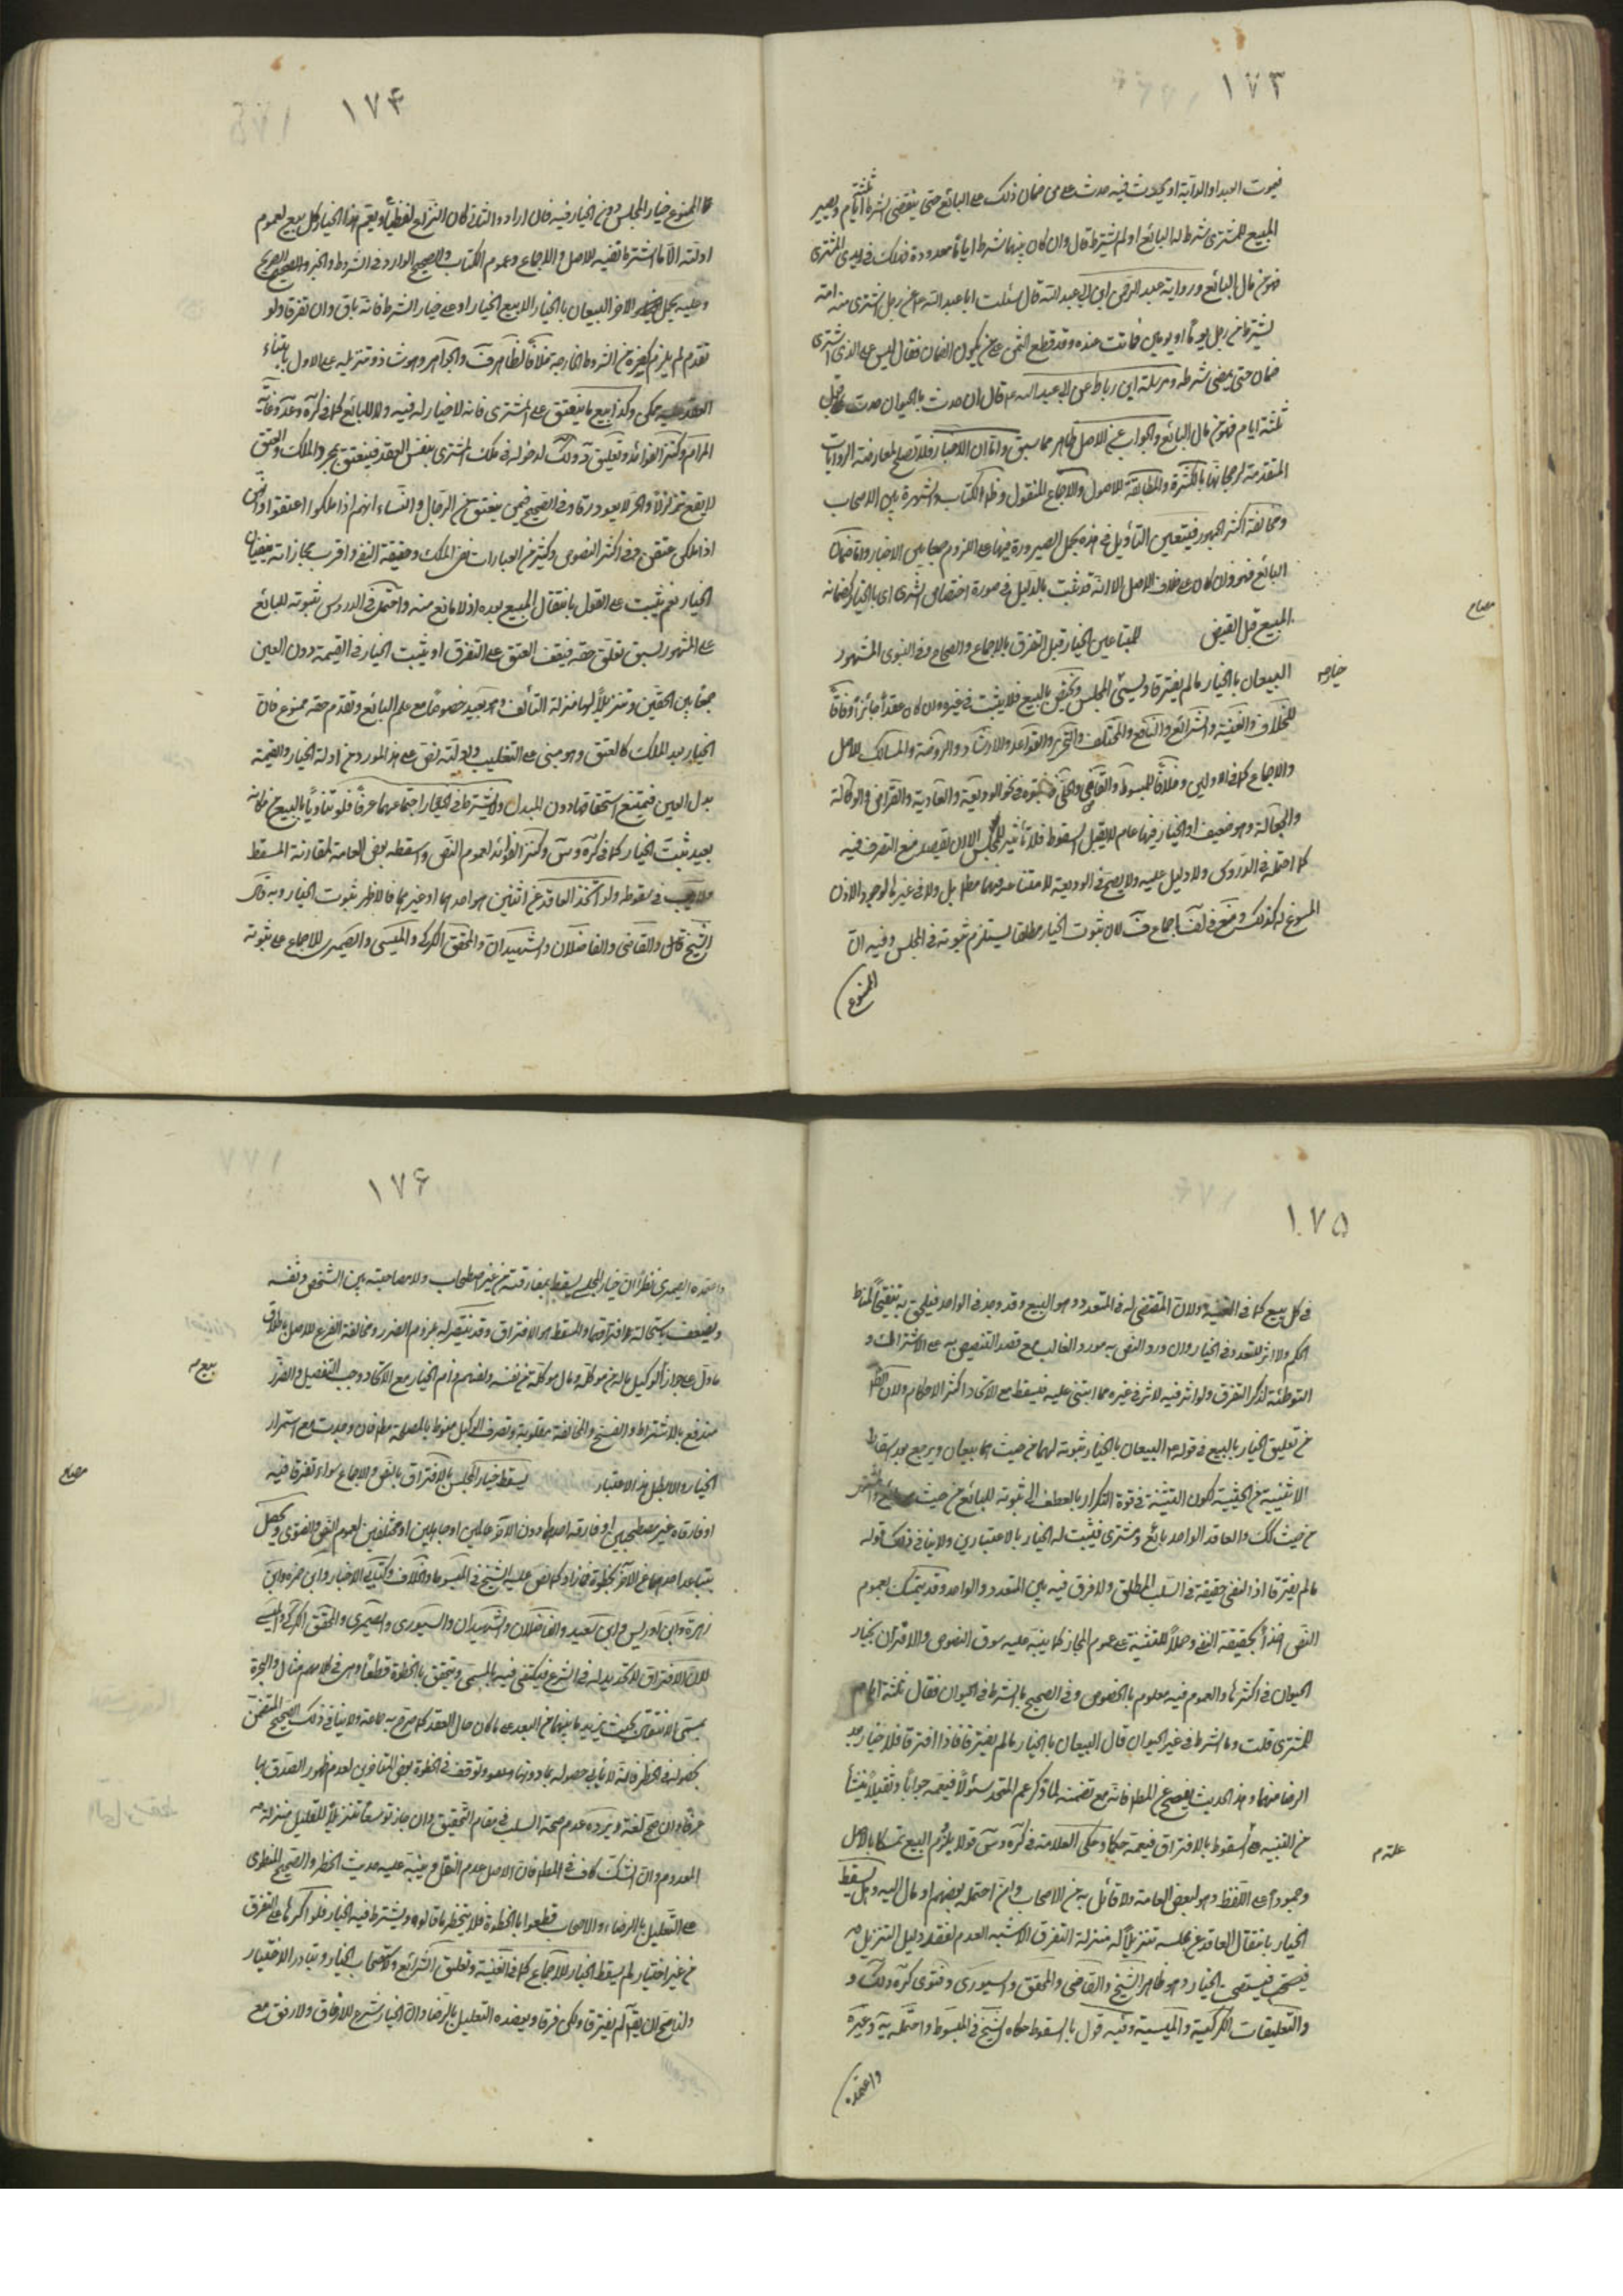 ١٧٣
فيموت العبد او الدابة او يحدث فيه حدث على من ضمان ذلك على البائع حتى ينقضى الشرط ثلثة ايام ويصير
المبيع للمشترى شرط له البائع او لم يشترط قال وان كان بينهما شرط اياما معدودة فهلك فى يدى المشترى
فهو من مال البائع ورواية عبد الرحمن ابن ابى عبد الله قال سئلت ابا عبد الله عن رجل اشترى منه امة
بشرط من رجل يوما او يومين فماتت عنده وقد قطع الثمن على من يكون الضمان فقال ليس على الذى اشترى
ضمان حتى يمضى شرطه ومرسلة ابن رباط عن ابى عبد الله ع قال ان حدث بالحيوان حدث قبل
ثلثة ايام فهو من مال البائع والجواب عن الاصل ظاهر مما سبق واما الاخبار فلا تصلح لمعارضة الروايات
المتقدمة لرجحانها بالكثرة والمطابقة للاصول والاجماع المنقول وظاهر الكتاب والشهرة بين الاصحاب
ومخالفة اكثر الجمهور فيتعين التأويل فى هذه بحمل الصيرورة فيها على اللزوم جمعا بين الاخبار واما ضمان
البائع فهو وان كان على خلاف الاصل الا انه قد ثبت بالدليل فى صورة اختصاص المشترى بالخيار كضمانه
المبيع قبل القبض للمتبايعين الخيار قبل التفرق بالاجماع والصحاح وفى النبوى المشهور
مصباح
البيعان بالخيار ما لم يفترقا ويسمى المجلس ويختص بالبيع فلا يثبت فى غيره وان كان عقدا جائزا وفاقا
خيار
للخلاف والغنية والشرائع والنافع والمختلف والتحرير والقواعد والارشاد والروضة والمسالك للاصل
والاجماع كما فى الاولين وخلافا للمبسوط والقاضى والحلى فاثبتوه فى نحو الوديعة والعارية والقراض والوكالة
والجعالة وهو ضعيف اذ الخيار فيها عام لا يقبل السقوط فلا تأثير للمجلس الا ان يقصد منع التصرف فيه
كما احتمله فى الدروس ولا دليل عليه ولا يصح فى الوديعة لامتناعه فيها مطلقا بل ولا فى غيرها لوجود الاذن
المسوغ له كذلك ومنع فى لف اجماع ف لان ثبوت الخيار مطلقا يستلزم ثبوته فى المجلس وفيه ان
الممنوع
١٧۴
الممنوع خيار المجلس دون الخيار فيه فان اراد الثانى كان النزاع لفظيا ويعم هذا الخيار كل بيع لعموم
ادلته الا ما اشترط نفيه للاصل والاجماع وعموم الكتاب والصحيح الوارد فى الشروط والخبر الصحيح
وعليه يحمل الاخر البيعان بالخيار الا بيع الخيار او على خيار الشرط فانه باق وان تفرقا ولو
تقدم لم يلزم كغيره من الشروط الخارجة خلافا لظاهر ف والجواهر وهو شاذ وتنزيله على الاول بابتناء
العقد عليه ممكن وكذا بيع ما ينعتق على المشترى فانه لا خيار له فيه ولا للبائع كما فى كره وعد وغاية
المرام وكنز الفوائد وتعليق د ولك لدخوله فى ملك المشترى بنفس العقد فينعتق بمجرد الملك والعتق
لا يقع متزلزلا والحر لا يعود رقا وفى الصحيح فيمن ينعتق من الرجال والنساء انهم اذا ملكوا اعتقوا
اذا ملكن عتقن وفى اكثر النصوص وكثير من العبارات نفى الملك وحقيقة النفى واقرب مجازاته ينفيان
الخيار نعم يثبت على القول بانتقال المبيع بعده اذ لا مانع منه واحتمل فى الدروس ثبوته للبائع
على المشهور لسبق تعلق حقه فيقف العتق على التفرق او يثبت الخيار فى القيمة دون العين
جمعا بين الحقين وتنزيلا لهما منزلة التالف وهو بعيد خصوصا مع علم البائع وتقدم حقه ممنوع فان
الخيار بعد الملك كالعتق وهو مبنى على التغليب ولدلالة نص على هذا المورد من ادلة الخيار والقيمة
بدل العين فيمتنع استحقاقها دون المبدل ولا يشترط فى الخيار اجتماعهما عرفا فلو تناديا بالبيع من مكان
بعيد ثبت الخيار كما فى كره وس وكنز الفوائد لعموم النص واسقطه بعض العامة لمقارنة المسقط
ولا ريب فى سقوطه ولو اتحد العاقد عن اثنين هو احدهما او غيرهما فالاظهر ثبوت الخيار وبه قال
الشيخ والقاضى والفاضلان والشهيدان والمحقق الكركى والميسى والصيمرى للاجماع على ثبوته
١٧۵
فى كل بيع كما فى الغنية ولان المقتضى له فى المتعدد وهو البيع وقد وجد فى الواحد فيلحق به تنقيحا لمناط
الحكم ولا اثر للتعدد فى الخيار وان ورد النص به مورد الغالب مع قصد التنصيص به على الاشتراك و
التوطئة لذكر التفرق ولو اثر فيه لاثر فى غيره مما ابتنى عليه فيسقط مع الاتحاد اكثر الاحكام ولان الظاهر
من تعليق الخيار بالبيع فى قوله البيعان بالخيار ثبوته لهما من حيث هما بيعان ويرجع بعد اسقاط
الاثنينية عن الحيثية لكون التثنية فى قوة التكرار بالعطف الى ثبوته للبائع من حيث هو بائع وللمشترى
من حيث كك والعاقد الواحد بائع ومشترى فيثبت له الخيار بالاعتبارين ولا ينافى ذلك قوله
ما لم يفترقا اذ النفى حقيقة فى السلب المطلق ولا فرق فيه بين المتعدد والواحد وقد يتمسك بعموم
النص اخذا بحقيقة النفى وحملا للتثنية على عموم المجاز كما ينبه عليه سوق النصوص والاقتران بخيار
الحيوان فى اكثرها والعموم فيه معلوم بالخصوص وفى الصحيح ما الشرط فى الحيوان فقال ثلثة ايام
للمشترى قلت وما الشرط فى غير الحيوان قال البيعان بالخيار ما لم يفترقا فاذا افترقا فلا خيار بعد
الرضا منهما وهذا الحديث يفصح عن المطلوب فانه مع تضمنه لما ذكر عم المتحد سئولا فيعمه جوابا وتفصيلا ينشأ
من التنبيه على السقوط بالافتراق فيعمه حكما وحكى العلامة فى كره وس قولا بلزوم البيع تمسكا بالاصل
علة م
وجمودا على اللفظ وهو لبعض العامة ولا قائل به من الاصحاب وان احتمله بعضهم او مال اليه وهل يسقط
الخيار بانتقال العاقد عن مجلسه تنزيلا له منزلة التفرق الاشبه العدم لفقد دليل التنزيل
فيستصحب الخيار وهو ظاهر الشيخ والقاضى والمحقق والسيورى وفتوى كره ولك و
والتعليقات الكركية والميسية وفيه قول بالسقوط حكاه الشيخ فى المبسوط واحتمله يه وغيره
واعتمده
١٧۶
واعتمده الصيمرى نظرا الى ان خيار المجلس يسقط بمفارقته من غير اصطحاب ولا مصاحبة بين الشخص ونفسه
ويضعف باستحالة افتراقهما والمسقط هو الافتراق وقد ينتصر له بلزوم الضرر ومخالفة الفرع للاصل باطلاق
ما دل على جواز بيع الوكيل ماله من موكله ومال موكله من نفسه ولضم دوام الخيار مع الاتحاد وجب التفصيل والضرر
مندفع بالاشتراط والفسخ والمخالفة مقلوبة وتصرف الوكيل منوط بالمصلحة مطلقا فان وجدت مع استمرار
الخيار والا بطل هذا الاعتبار يسقط خيار المجلس بالافتراق بالنص والاجماع سواء تفرقا فيه
مصباح
او فارقاه غير مصطحبين او فارقه احدهما دون الآخر عالمين او جاهلين او مختلفين لعموم النص والفتوى ويحصل
بتباعد احدهما عن الآخر بخطوة فما زاد كما نص عليه الشيخ فى المبسوط والخلاف وابن حمزة وابن
زهرة وابن ادريس وابن سعيد والفاضلان والشهيدان والسيورى والصيمرى والمحقق الكركى والميسى
لان الافتراق لا تحديد له فى الشرع فيكتفى فيه بالمسمى ويتحقق بالخطوة قطعا وهى فى كلامهم مثال والعبرة
بمسمى الانتقال بحيث يزيد ما بينهما من البعد على ما كان حال العقد كما صرح به جماعة ولا ينافى ذلك الصحيح المتضمن
لحصوله فى الخطى فانه لا ينافى حصوله بما دونها وتوقف فى الخطوة بعض المتاخرين لعدم ظهور الصدق بها
عرفا وان صح لغة ويرده عدم صحة السلب فى مقام التحقيق وان جاز توسعا تنزيلا للقليل منزلة
المعدوم وان الشك كاف فى المطلوب فان الاصل عدم النقل وينبه عليه حديث الخطى والصحيح المنطوى
على التعليل بالرضاء والاصحاب قطعوا بالخطوة فلا يتخطى ما قالوه ويشترط فيه الخيار فلو اكرها على التفرق
من غير اختيار لم يسقط الخيار للاجماع كما فى الغنية وتعليق الشرائع واستصحاب الخيار وتبادر الاختيار
ولذا صح ان يقال لم يفترقا ولكن فرقا ويعضده التعليل بالرضا وان الخيار شرع للارفاق ولا رفق مع